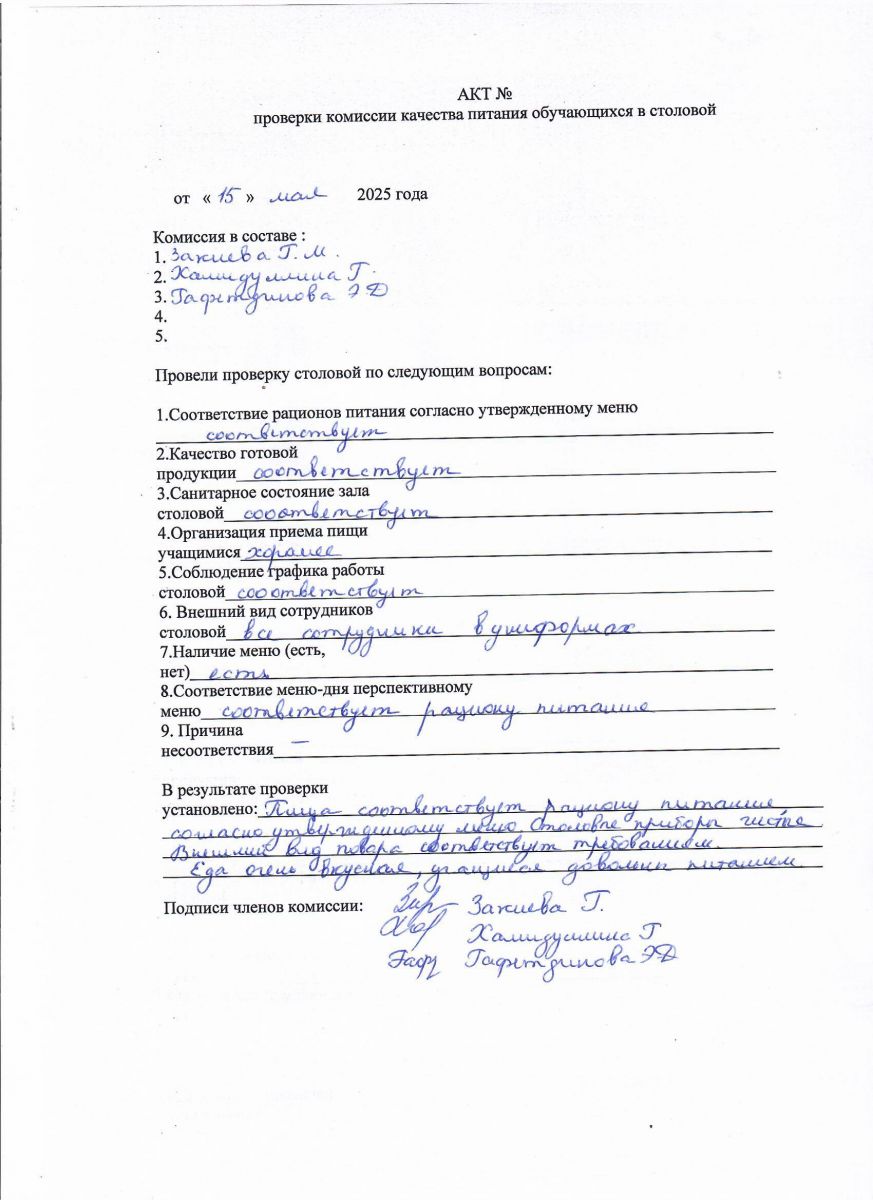 АКТ №
проверки комиссии качества питания обучающихся в столовой
от « 15 » мая 2025 года
Комиссия в составе :
1. Закиева Г. М.
2. Хамидуллина Г.
3. Гафтдинова Э Д
4.
5.
Провели проверку столовой по следующим вопросам:
1.Соответствие рационов питания согласно утвержденному меню
соответствует
2.Качество готовой
продукции соответствует
3.Санитарное состояние зала
столовой соответствует
4.Организация приема пищи
учащимися хорошее
5.Соблюдение графика работы
столовой соответствует
6. Внешний вид сотрудников
столовой все сотрудники в униформах
7.Наличие меню (есть,
нет) есть
8.Соответствие меню-дня перспективному
меню соответствует рациону питание
9. Причина
несоответствия —
В результате проверки
установлено: Пища соответствует рациону питание,
согласно утвержденному меню. Столовые приборы чистые
Внешний вид повара соответствует требованием.
Еда очень вкусная, учащиеся довольны питанием
Подписи членов комиссии: Закиева Г.
Хамидуллина Г
Гафтдинова Э Д